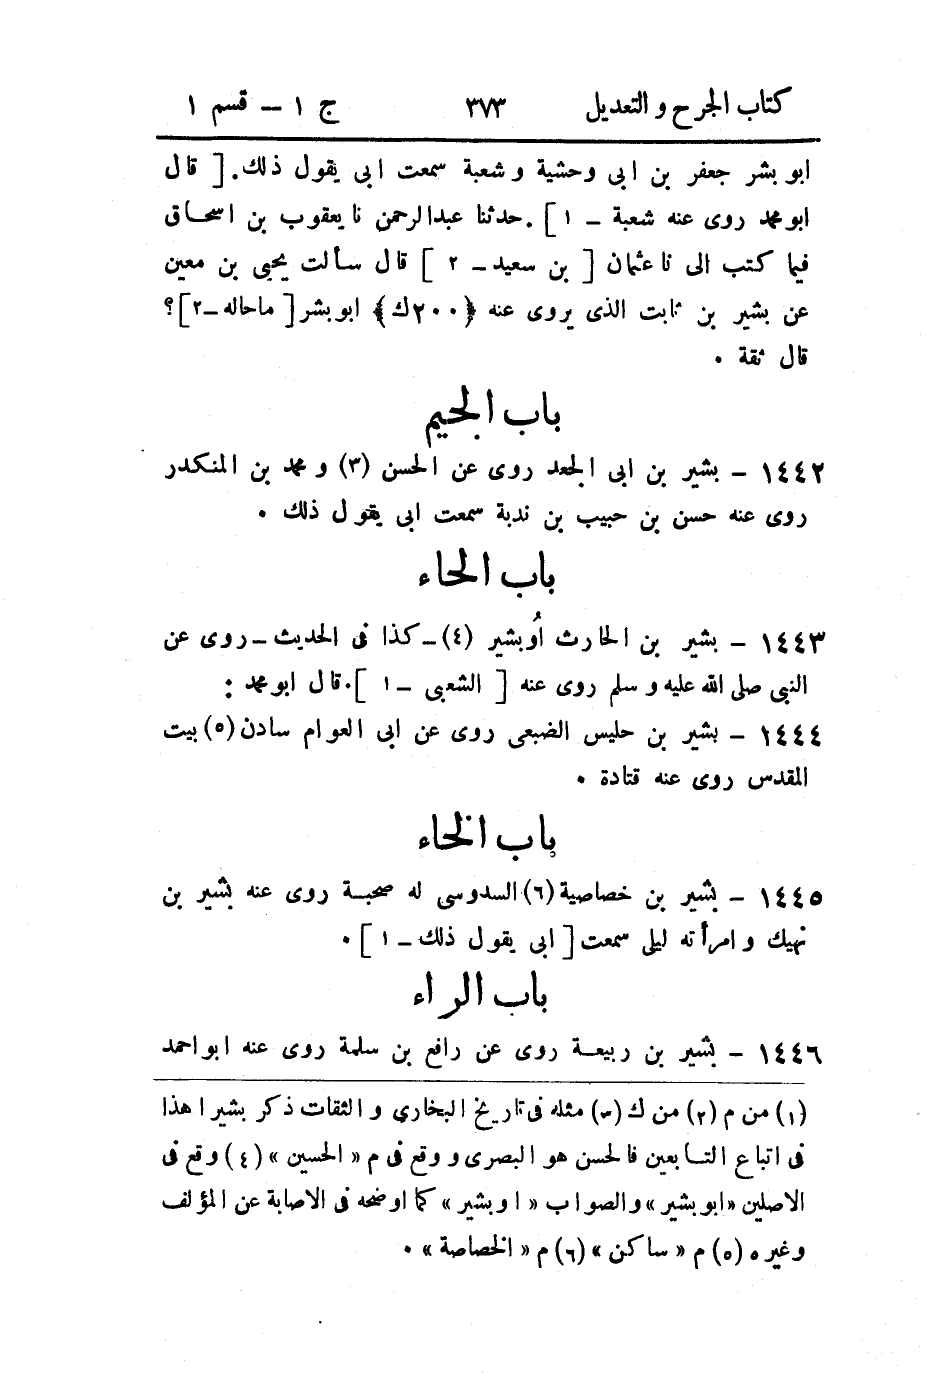 كتاب الجرح والتعديل ٣٧٣ ج ١ – قسم ١
ابو بشر جعفر بن ابى وحشية وشعبة سمعت ابى يقول ذلك. [ قال
ابو محمد روى عنه شعبة – ١ ] . حدثنا عبدالرحمن نا يعقوب بن اسحاق
فيما كتب الى نا عثمان [ بن سعيد – ٢ ] قال سألت يحيى بن معين
عن بشير بن ثابت الذى يروى عنه ﴿٢٠٠ك﴾ ابو بشر [ ما حاله – ٢ ]؟
قال ثقة .
باب الجيم
١٤٤٢ – بشير بن ابى الجعد روى عن الحسن (٣) و محمد بن المنكدر
روى عنه حسن بن حبيب بن ندبة سمعت ابى يقول ذلك .
باب الحاء
١٤٤٣ – بشير بن الحارث أوبشير (٤) – كذا فى الحديث – روى عن
النبى صلى الله عليه و سلم روى عنه [ الشعبى – ١ ] . قال ابو محمد :
١٤٤٤ – بشير بن حليس الضبعى روى عن ابى العوام سادن (٥) بيت
المقدس روى عنه قتادة .
باب الخاء
١٤٤٥ – بشير بن خصاصية (٦) السدوسى له صحبة روى عنه بشير بن
نهيك و امرأته ليلى سمعت [ ابى يقول ذلك – ١ ] .
باب الراء
١٤٤٦ – بشير بن ربيعة روى عن رافع بن سلمة روى عنه ابو احمد
(١) من م (٢) من ك (٣) مثله فى تاريخ البخاري و الثقات ذكر بشيرا هذا
فى اتباع التابعين فالحسن هو البصرى و وقع فى م « الحسين » (٤) وقع فى
الاصلين « ابو بشير » والصواب « او بشير » كما اوضحه فى الاصابة عن المؤلف
وغيره (٥) م « ساكن » (٦) م « الخصاصة » .